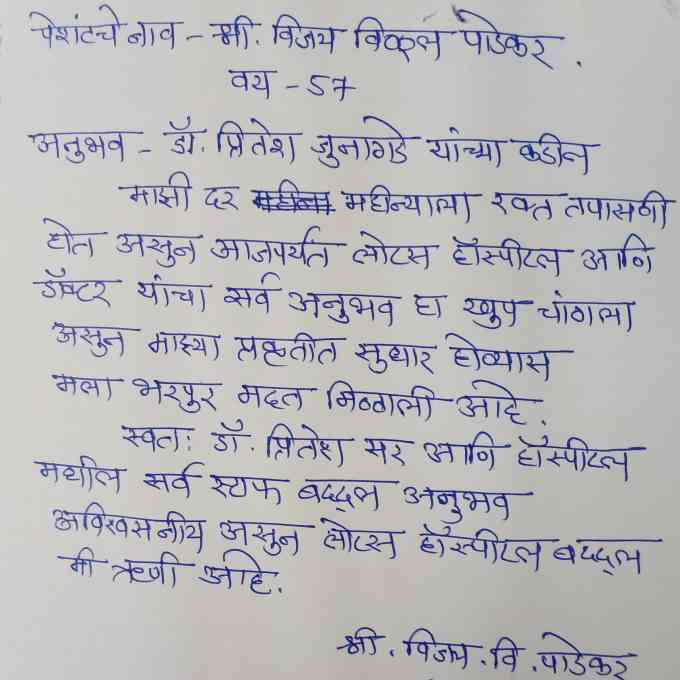 पेशंटचे नाव - श्री. विजय विठ्ठल पाडेकर.
वय - 57
अनुभव - डॉ. प्रितेश जुनागडे यांच्या कडीन
माझी दर महीना महीन्याला रक्त तपासणी
होत असुन आजपर्यंत लोटस हॉस्पीटल आणि
डॉक्टर यांचा सर्व अनुभव हा खुप चांगला
असुन माझ्या प्रकृतीत सुधार होण्यास
मला भरपुर मदत मिळाली आहे.
स्वतः डॉ. प्रितेश सर आणि हॉस्पीटल
मधील सर्व स्टाफ बद्दल अनुभव
अविश्वसनीय असुन लोटस हॉस्पीटल बद्दल
मी ऋणी आहे.
श्री. विजय. वि. पाडेकर